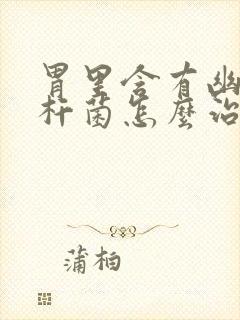 胃里含有幽
杆菌怎麼治
蒲柏